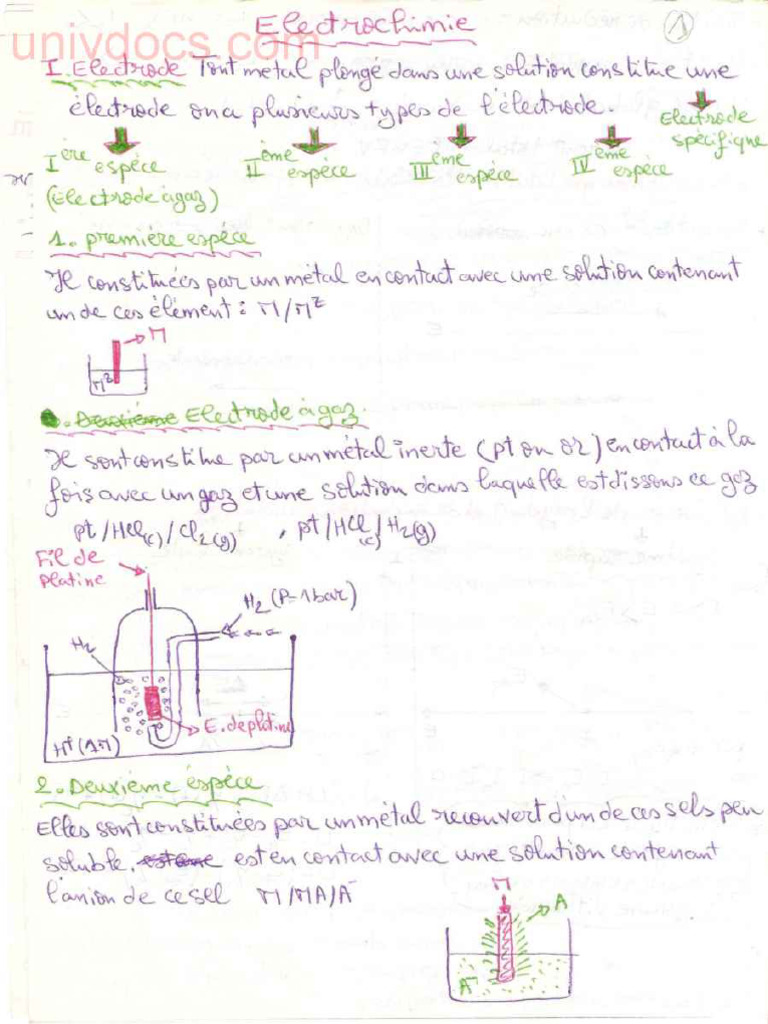 Electrochimie 1
univdocs.com
I. Electrode Tout metal plongé dans une solution constitue une
électrode on a plusieurs types de l'électrode.
Electrode spécifique
Ière espèce II ème espèce III ème espèce IV ème espèce
(Electrode à gaz)
1. première espèce
Il constituées par un métal en contact avec une solution contenant
un de ces élément : M/M^z
M
M^z
Deuxième Electrode à gaz
Il sont constitue par un métal inerte (pt ou or) en contact à la
fois avec un gaz et une solution dans laquelle est dissous ce gaz
pt/HCl(c)/Cl2(g) , pt/HCl(c)/H2(g)
Fil de
platine
H2 (P=1bar)
H2
E. de platine
H+(1M)
2. Deuxième éspèce
Elles sont constituées par un métal recouvert d'un de ces sels peu
soluble. est en contact avec une solution contenant
l'anion de ce sel M/MA/A-
M
A
A-